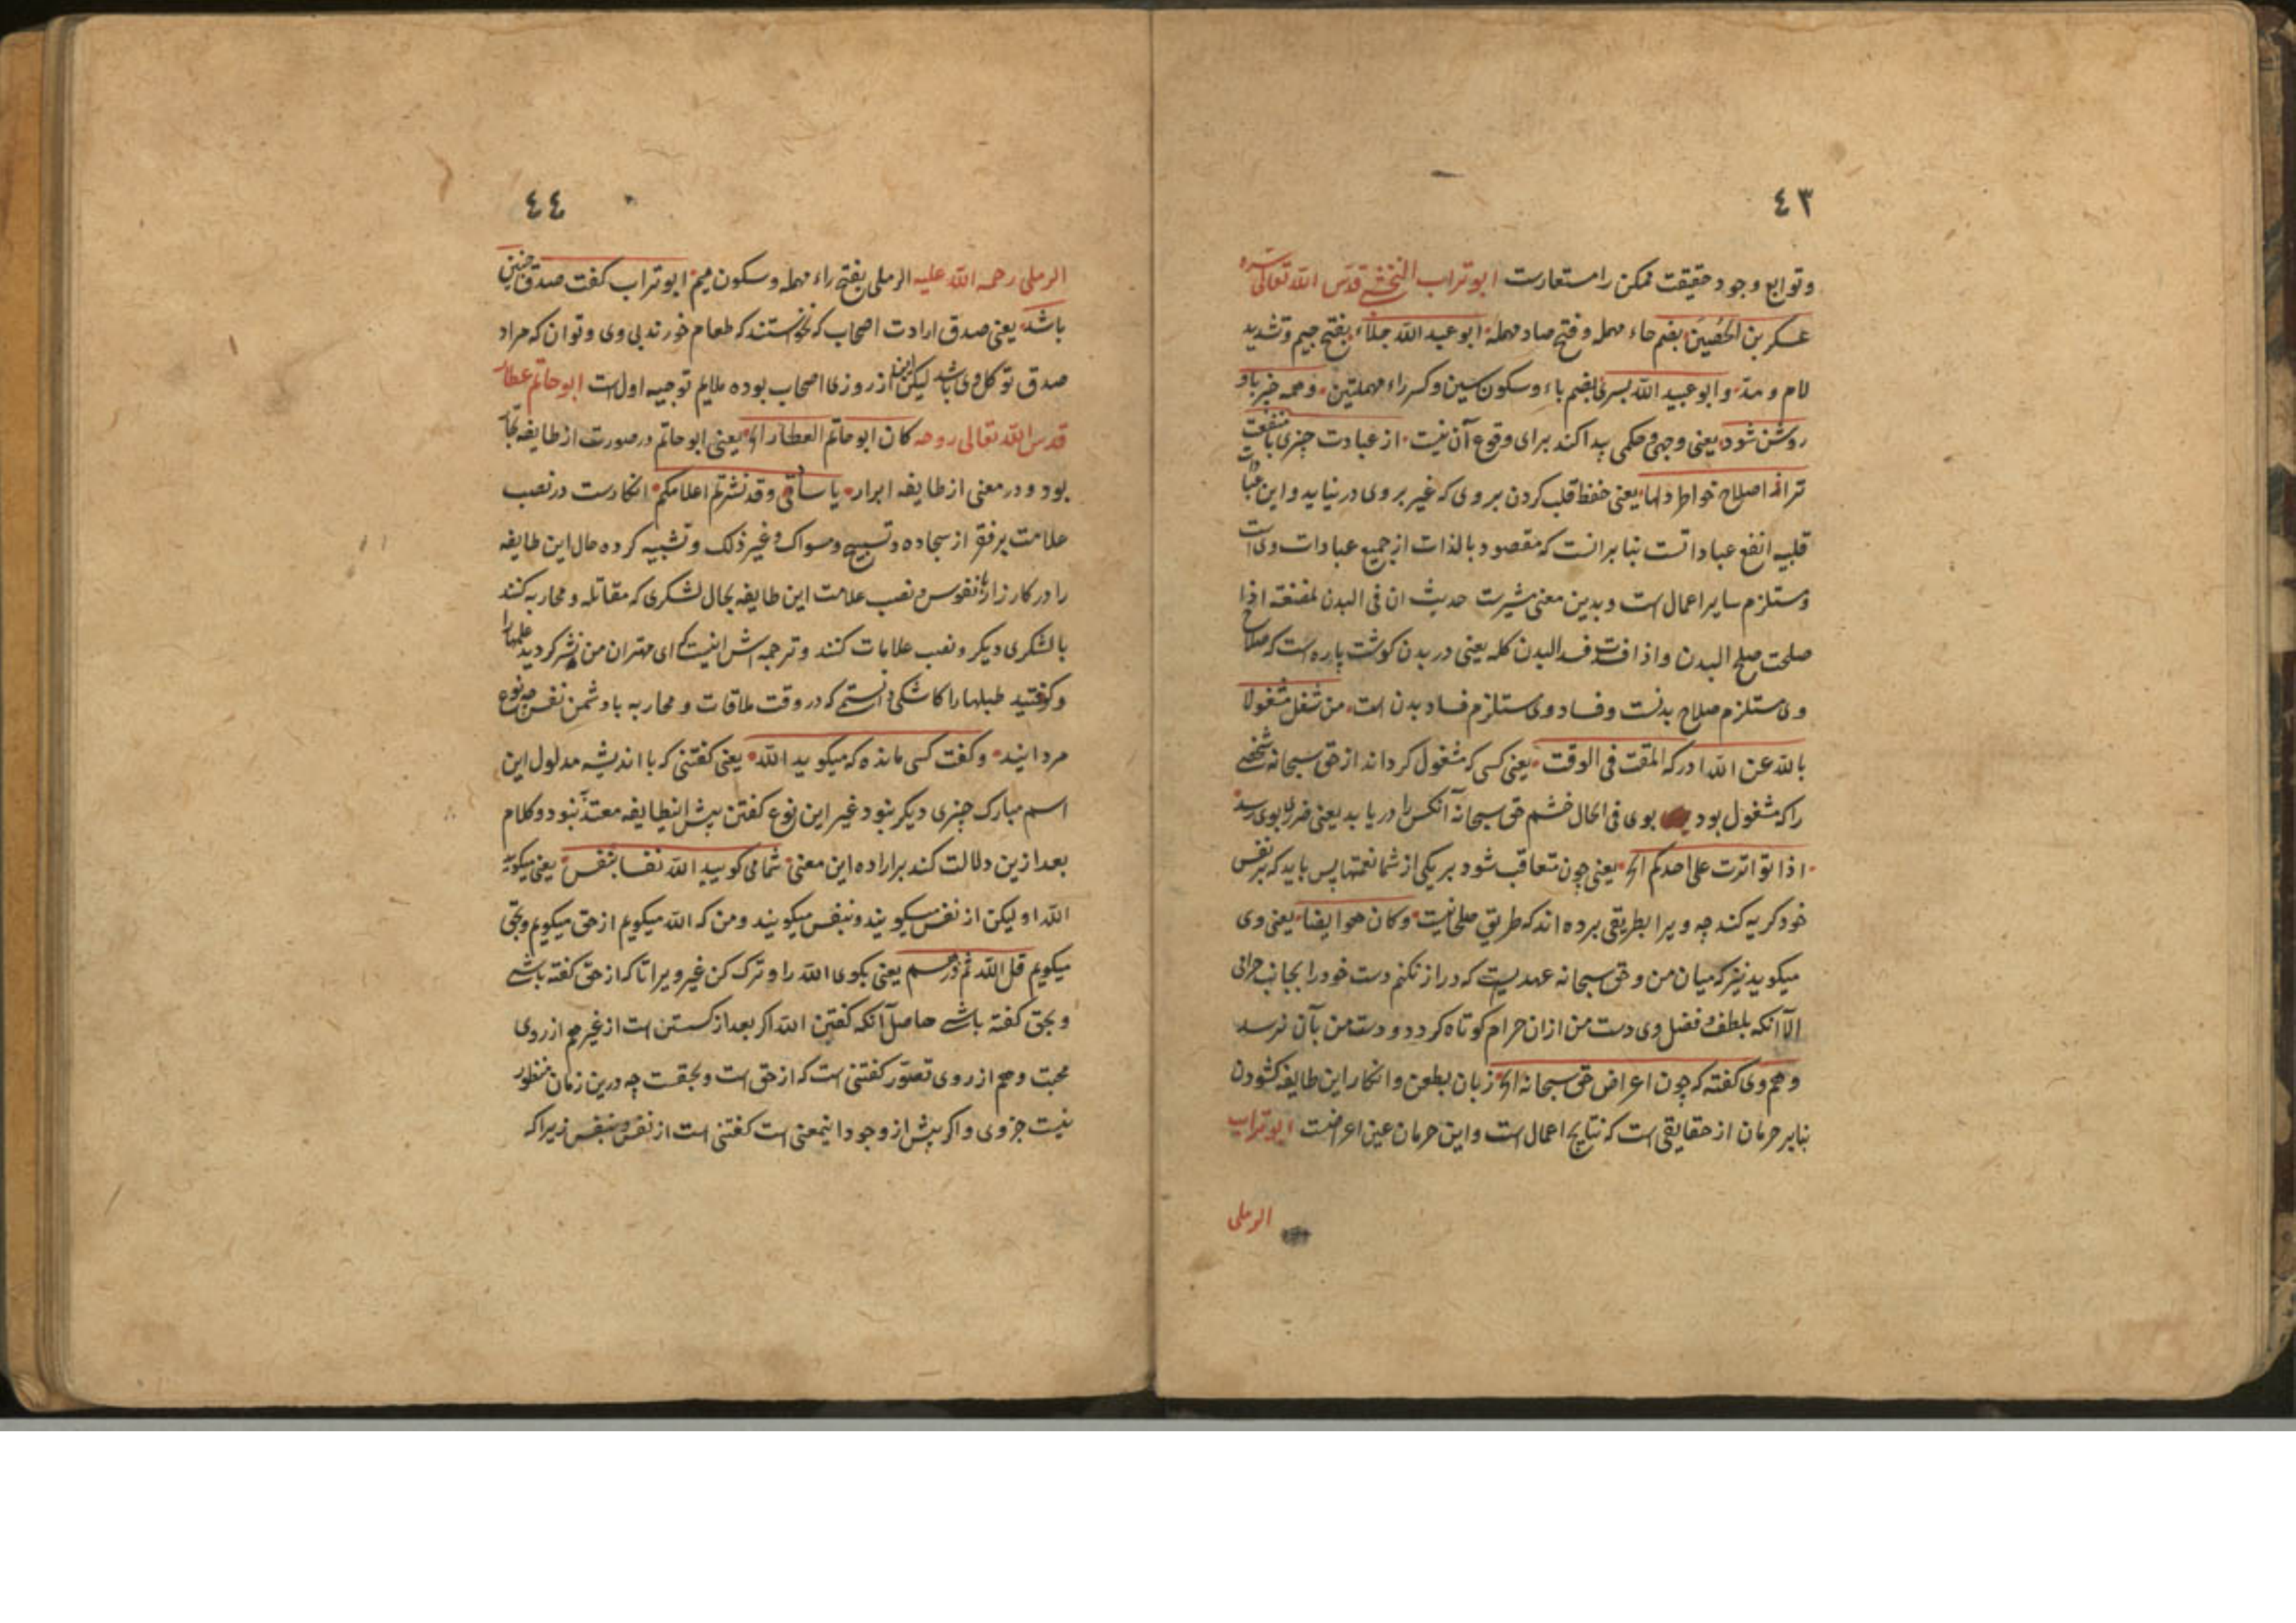 ٤٣
وتوابع وجود حقیقت ممکن را مستعارست ابوتراب النخشبی قدس الله تعالی سره
عسکر بن الحُصَین بضم حاء مهمله و فتح صاد مهمله ابو عبد الله جلّاء بفتح جیم و تشدید
لام و مدّ وابو عبید الله بسری بضم باء وسکون سین وکسر راء مهملتین و همه خبر باو
روشن شود یعنی وجهی وحکمی پیدا کند برای وقوع آن نیست از عبادت چیزی با منفعت
تر از اصلاح خواطر دلها یعنی حفظ قلب کردن بروی که غیر بروی در نیاید و این عبادات
قلبیه انفع عباداتست بنا برانست که مقصود بالذات از جمیع عبادات ویست
ومستلزم سایر اعمال است وبدین معنی مشیرست حدیث ان فی البدن لمضغة اذا
صلحت صلح البدن واذا فسدت فسد البدن کله یعنی در بدن گوشت پاره است که صلاح
وی مستلزم صلاح بدنست وفساد وی مستلزم فساد بدن است من شغل مشغولا
بالله عن الله ادرکه المقت فی الوقت یعنی کسی که مشغول کرداند از حق سبحانه شخصی
را که مشغول بود بوی فی الحال خشم حق سبحانه آنکس را دریابد یعنی ضرری بوی رسد
اذا تواترت علی احدکم الخ یعنی چون متعاقب شود بر یکی از شما نعمتها پس باید که بر نفس
خود کریه کند چه ویرا بطریقی برده اند که طریق صلحا نیست وکان هو ایضا یعنی وی
میکوید نیز که میان من و حق سبحانه عهدیست که دراز نکنم دست خود را بجانب حرامی
الّا آنکه بلطف و فضل وی دست من ازان حرام کوتاه کردد و دست من بآن نرسد
و هم وی گفته که چون اعراض حق سبحانه الخ زبان بطعن و انکار این طایفه کشودن
بنابر حرمان از حقایقی است که نتایج اعمال است واین حرمان عین اعراضست ابوتراب
الرملی
٤٤
الرملی رحمه الله علیه الرملی بفتح راء مهمله وسکون میم ابوتراب کفت صدق چنین
باشد یعنی صدق ارادت اصحاب که نخواستند که طعام خورند بی وی وتوان که مراد
صدق توکل وی باشد لیکن این از روزی اصحاب بوده ملایم توجیه اول است ابو حاتم عطار
قدس الله تعالی روحه کان ابو حاتم العطار الخ یعنی ابو حاتم در صورت از طایفه تجار
بود و در معنی از طایفه ابرار یا ساتی وقد نشرتم اعلامکم انکارست در نصب
علامت بر فقر از سجاده وتسبیح ومسواک وغیر ذلک وتشبیه کرده حال این طایفه
را در کارزار با نفوس و نصب علامت این طایفه بحال لشکری که مقاتله و محاربه کنند
با لشکری دیکر و نصب علامات کنند و ترجمه اش اینست که ای مهتران من نشر کردید علمها را
وکوفتید طبلها را کاشکی دانستمی که در وقت ملاقات و محاربه با دشمن نفس چه نوع
مردانید وکفت کسی مانده که میکوید الله یعنی کفتنی که با اندیشه مدلول این
اسم مبارک چیزی دیکر نبود غیر این نوع کفتن پیش اینطایفه معتدّ نبود و کلام
بعد ازین دلالت کند بر اراده این معنی شما می کویید الله نفسا بنفس یعنی میکویید
الله او لیکن از نفس میکویند و بنفس میکویند ومن که الله میکویم از حق میکویم وبحق
میکویم قل الله ثم ذرهم یعنی بکوی الله را و ترک کن غیر ویرا تا که از حق کفته باشی
و بحق کفته باشی حاصل آنکه کفتن الله اکر بعد از کسستن است از غیر هم از روی
محبت و هم از روی تصوّر کفتنی است که از حق است وبحقست چه درین زمان منظور
نیست جز وی واکر پیش از وجود اینمعنی است کفتنی است از نفس و بنفس زیرا که